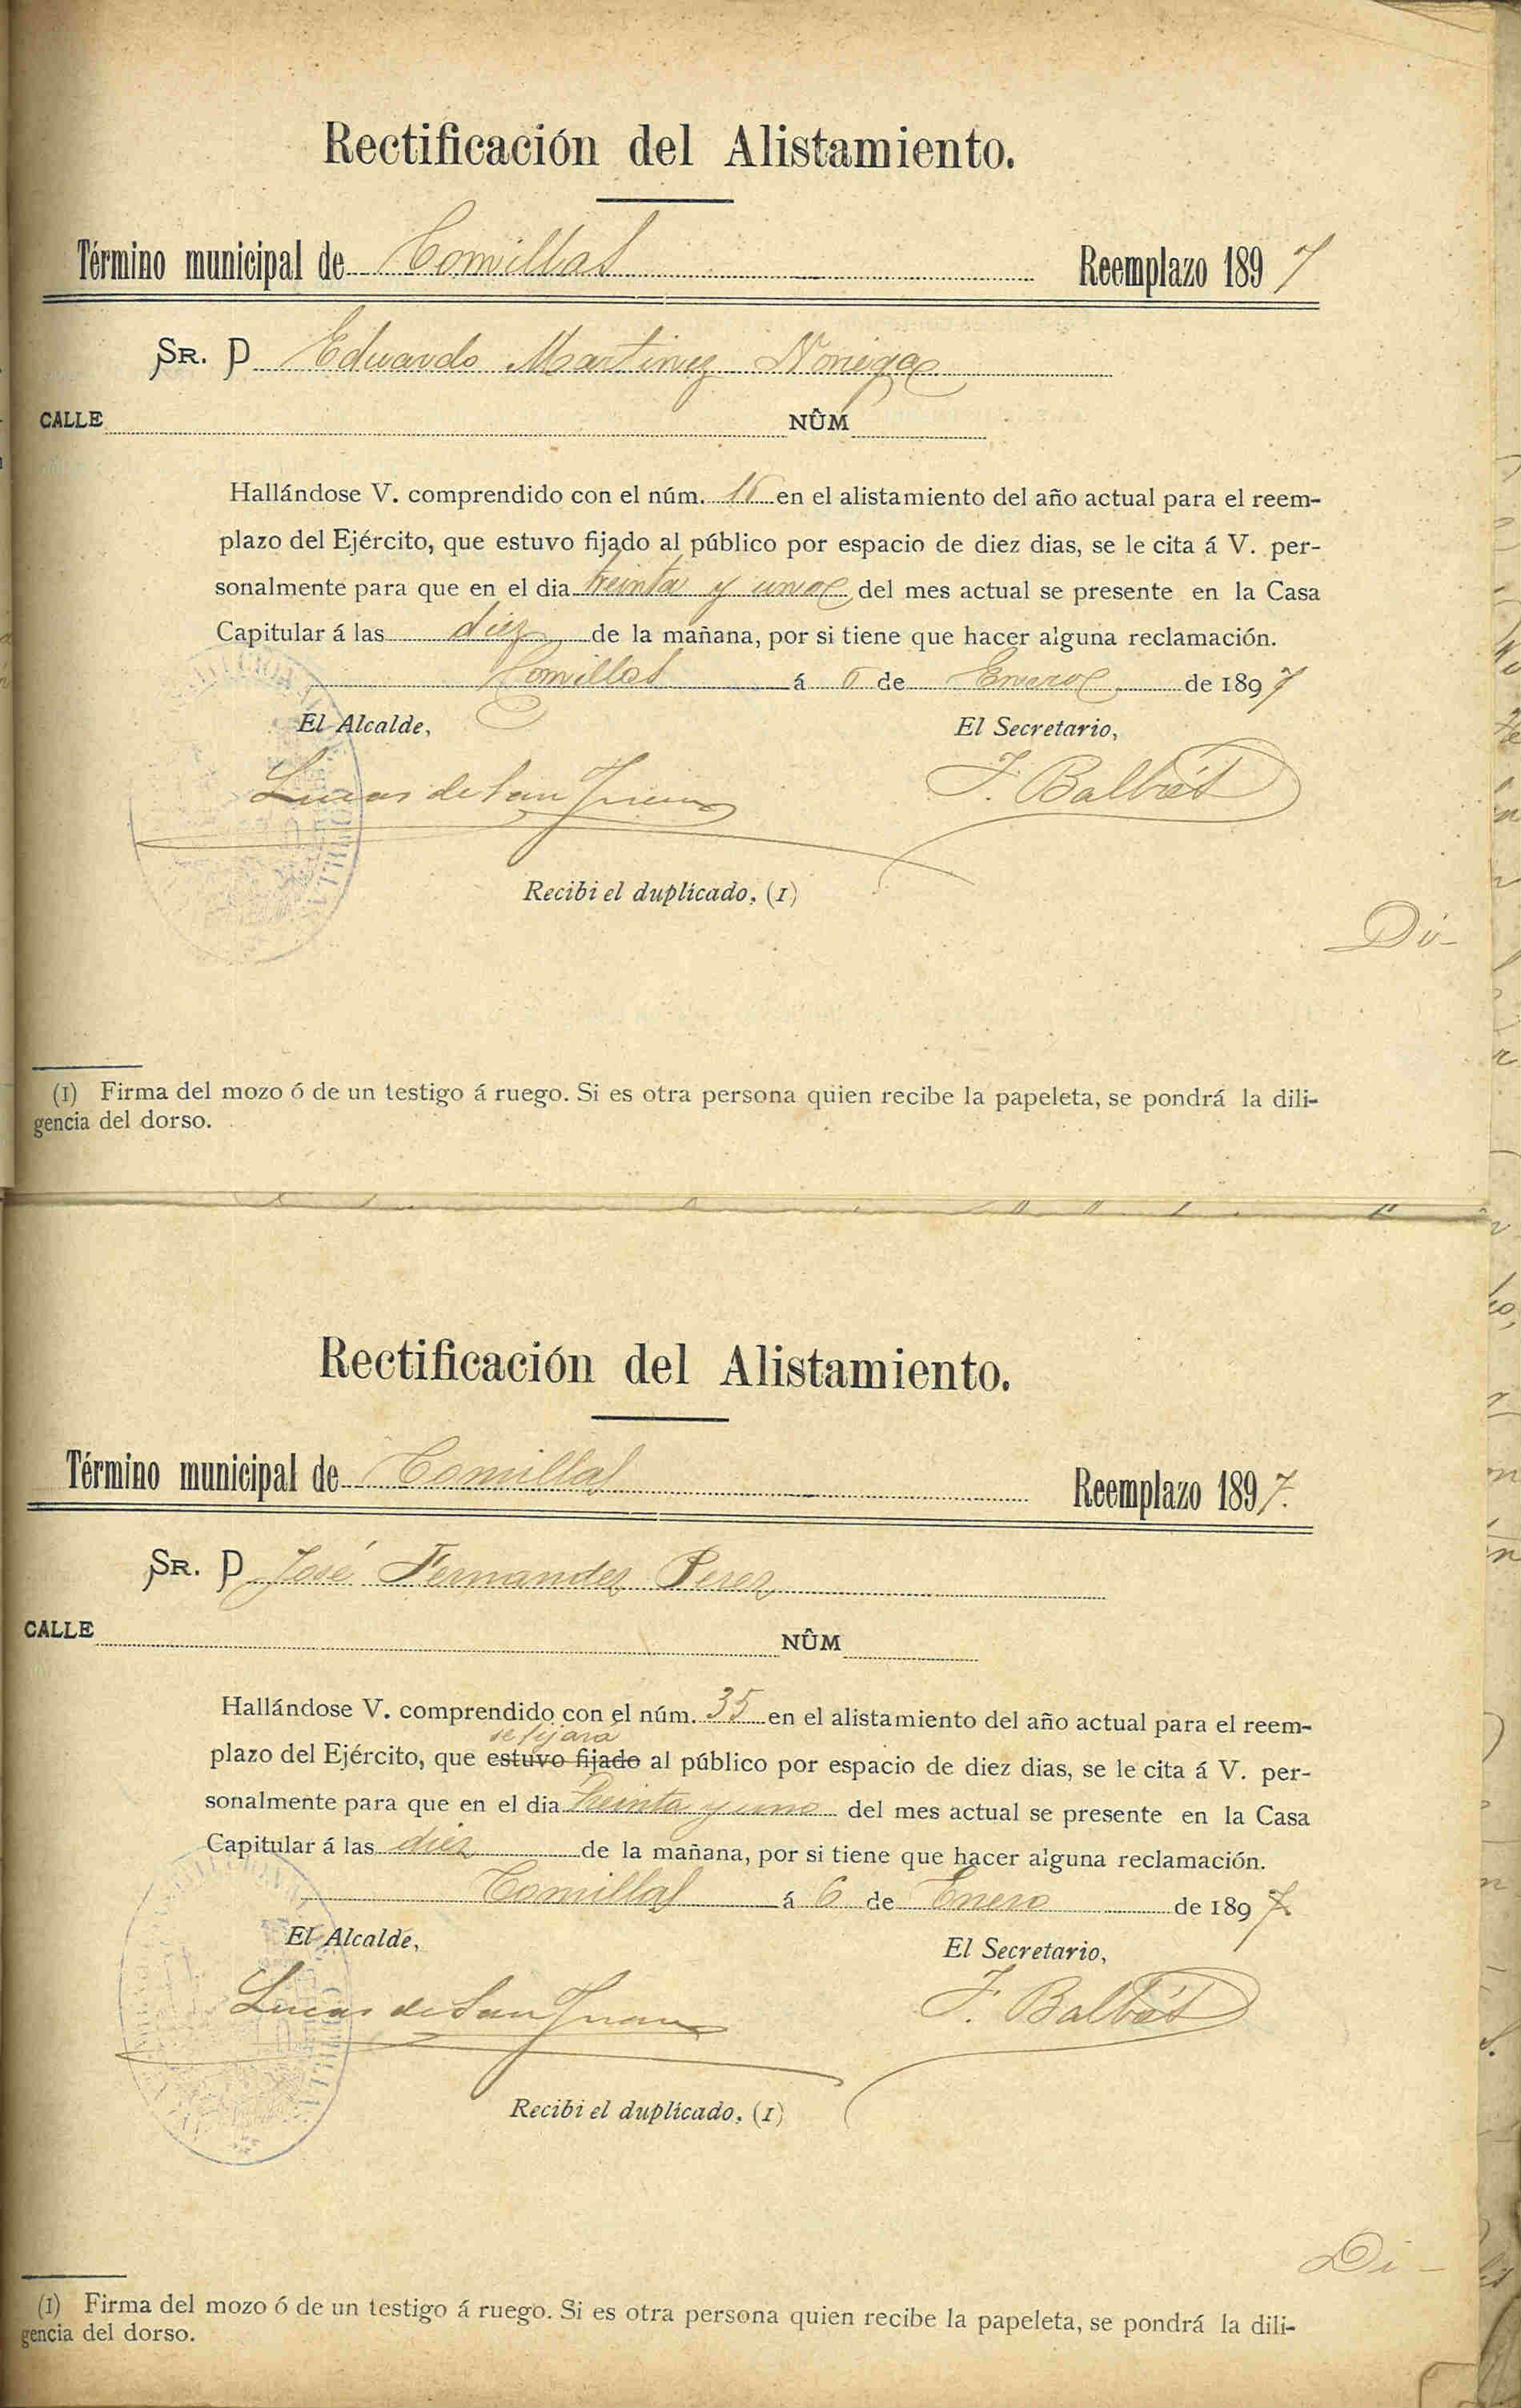 Rectificación del Alistamiento.
Término municipal de Comillas Reemplazo 1897
SR. D Eduardo Martinez Noriega
CALLE NÚM
Hallándose V. comprendido con el núm. en el alistamiento del año actual para el reem-
plazo del Ejército, que estuvo fijado al público por espacio de diez dias, se le cita á V. per-
sonalmente para que en el dia treinta y uno del mes actual se presente en la Casa
Capitular á las diez de la mañana, por si tiene que hacer alguna reclamación.
Comillas á 6 de Enero de 1897
El Alcalde, El Secretario,
Lucas de San Juan F. Balbás
Recibi el duplicado, (1)
Di-
(1) Firma del mozo ó de un testigo á ruego. Si es otra persona quien recibe la papeleta, se pondrá la dili-
gencia del dorso.
Rectificación del Alistamiento.
Término municipal de Comillas Reemplazo 1897.
SR. D José Fernandez Perez
CALLE NÚM
Hallándose V. comprendido con el núm. 35 en el alistamiento del año actual para el reem-
se fijará
plazo del Ejército, que estuvo fijado al público por espacio de diez dias, se le cita á V. per-
sonalmente para que en el dia treinta y uno del mes actual se presente en la Casa
Capitular á las diez de la mañana, por si tiene que hacer alguna reclamación.
Comillas á 6 de Enero de 1897
El Alcalde, El Secretario,
Lucas de San Juan F. Balbás
Recibi el duplicado, (1)
Di-
(1) Firma del mozo ó de un testigo á ruego. Si es otra persona quien recibe la papeleta, se pondrá la dili-
gencia del dorso.